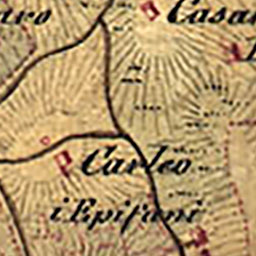 Casa
Carleo
i Epifani